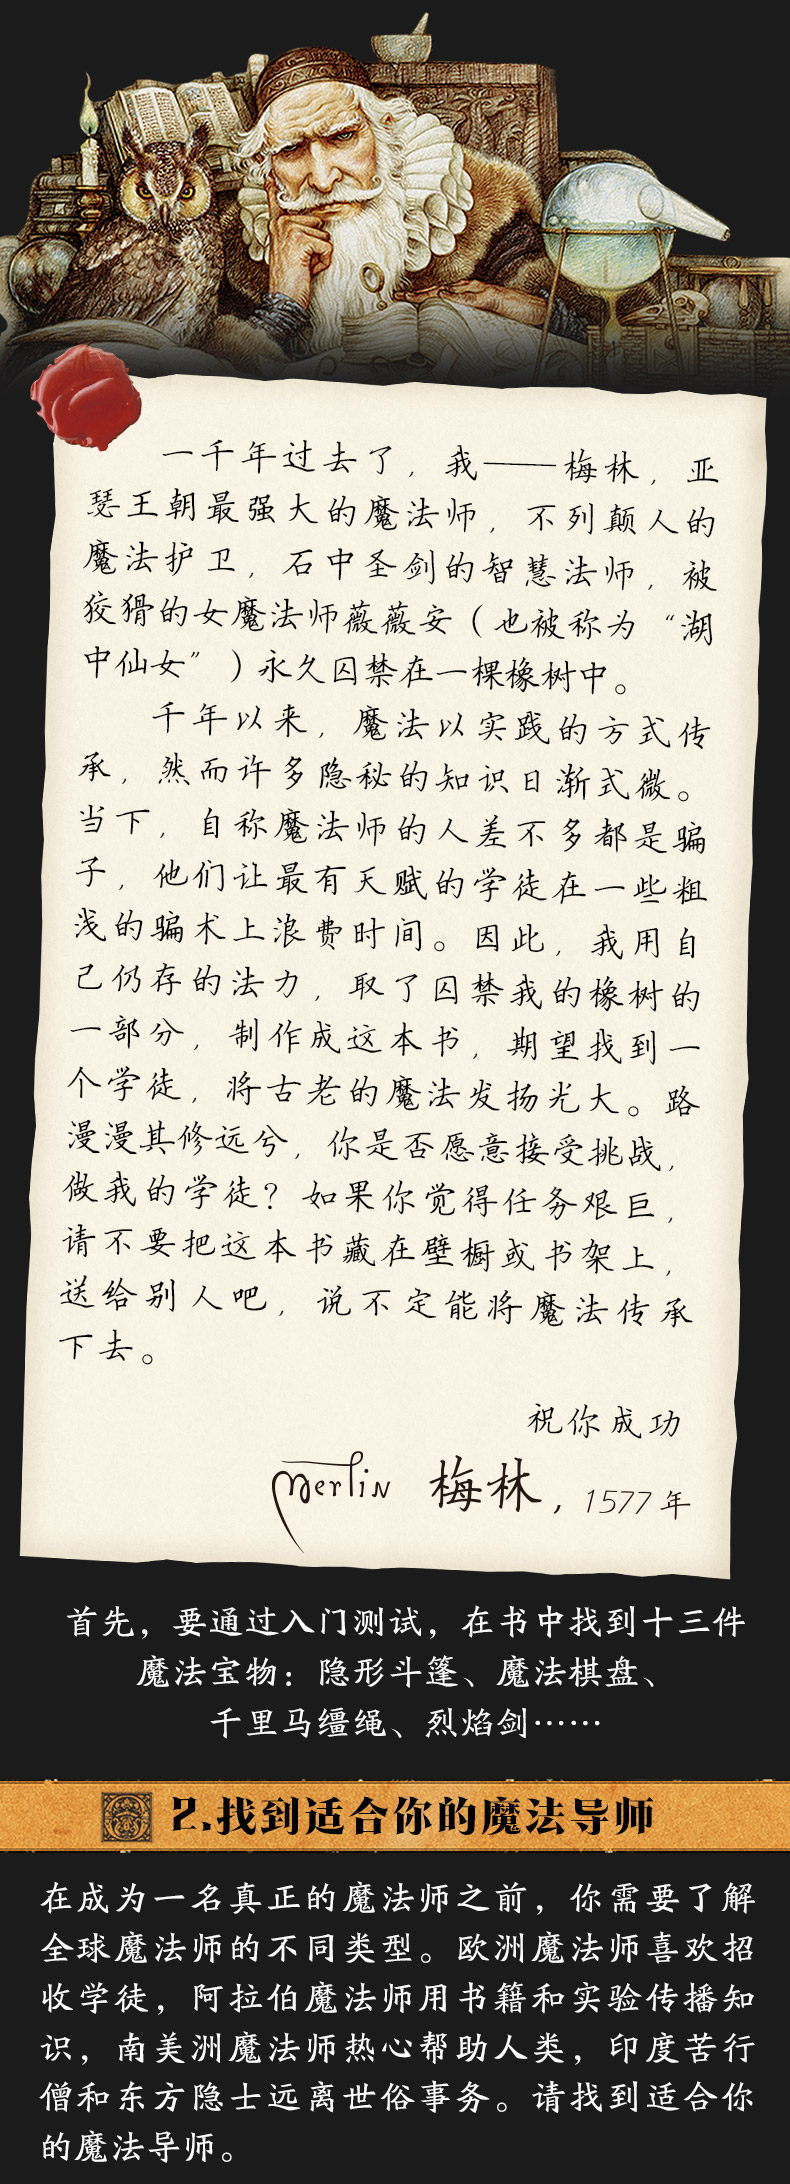 一千年过去了，我——梅林，亚
瑟王朝最强大的魔法师，不列颠人的
魔法护卫，石中圣剑的智慧法师，被
狡猾的女魔法师薇薇安（也被称为“湖
中仙女”）永久囚禁在一棵橡树中。
千年以来，魔法以实践的方式传
承，然而许多隐秘的知识日渐式微。
当下，自称魔法师的人差不多都是骗
子，他们让最有天赋的学徒在一些粗
浅的骗术上浪费时间。因此，我用自
己仍存的法力，取了囚禁我的橡树的
一部分，制作成这本书，期望找到一
个学徒，将古老的魔法发扬光大。路
漫漫其修远兮，你是否愿意接受挑战，
做我的学徒？如果你觉得任务艰巨，
请不要把这本书藏在壁橱或书架上，
送给别人吧，说不定能将魔法传承
下去。
祝你成功
Merlin 梅林，1577年
首先，要通过入门测试，在书中找到十三件
魔法宝物：隐形斗篷、魔法棋盘、
千里马缰绳、烈焰剑……
2.找到适合你的魔法导师
在成为一名真正的魔法师之前，你需要了解
全球魔法师的不同类型。欧洲魔法师喜欢招
收学徒，阿拉伯魔法师用书籍和实验传播知
识，南美洲魔法师热心帮助人类，印度苦行
僧和东方隐士远离世俗事务。请找到适合你
的魔法导师。